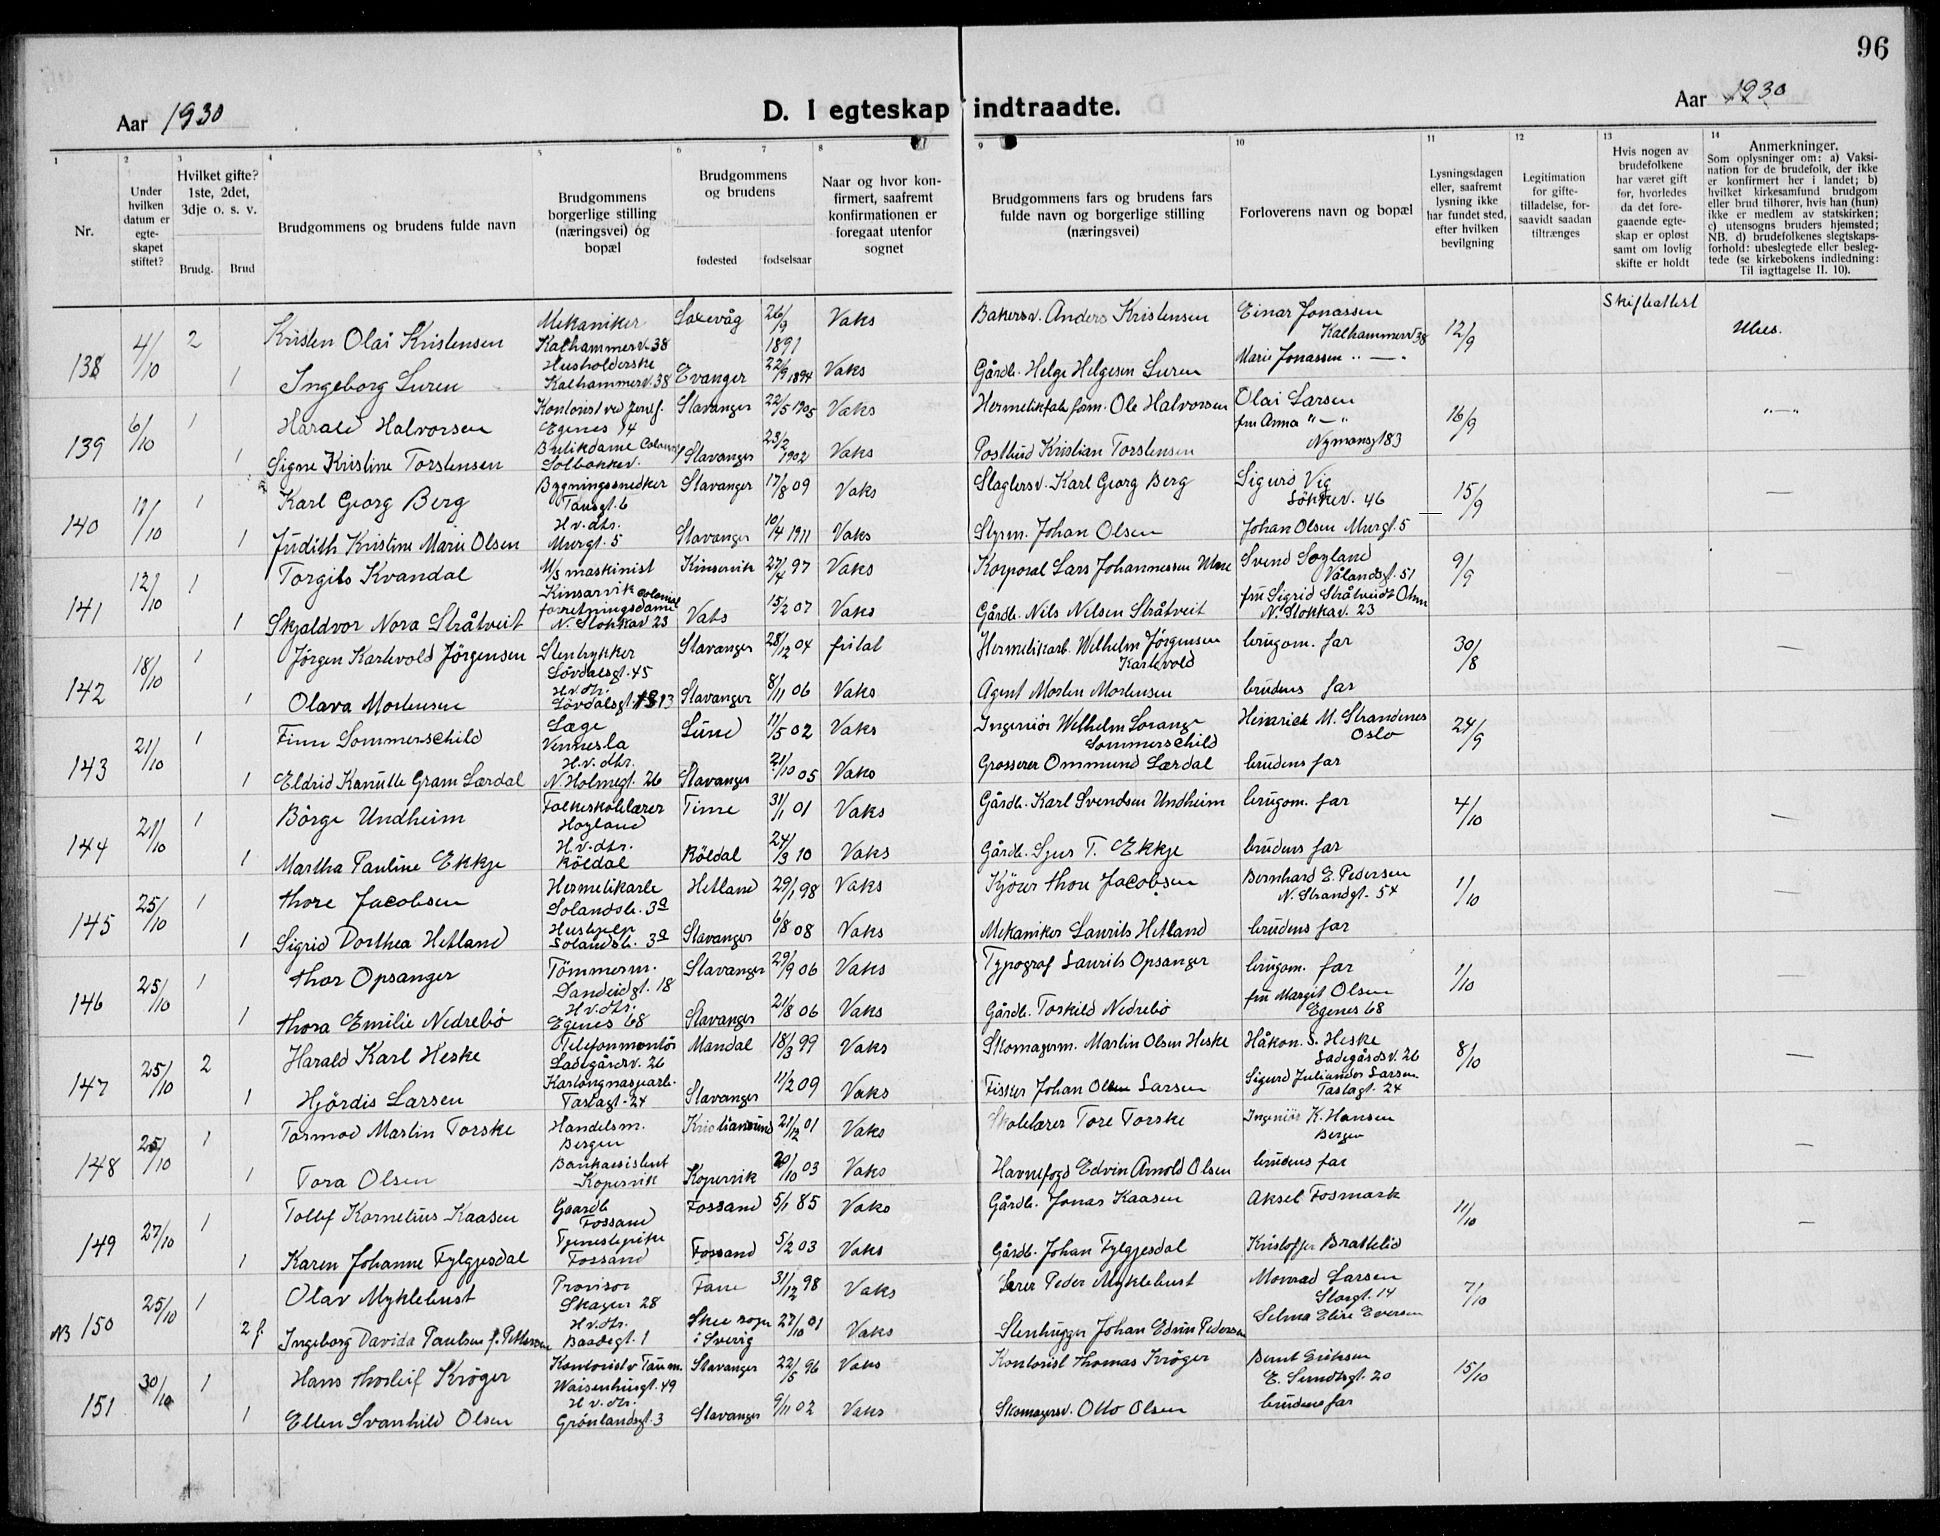 96
Aar 1930
D. I egteskap indtraadte.
Aar 1930
1 2 3 4 5 6 7 8 9 10 11 12 13 14
Nr.
Under hvilken datum er egteskapet stiftet?
Hvilket gifte? 1ste, 2det, 3dje o. s. v.
Brudg. Brud
Brudgommens og brudens fulde navn
Brudgommens borgerlige stilling (næringsvei) og bopæl
Brudgommens og brudens
fødested fødselsaar
Naar og hvor konfirmert, saafremt konfirmationen er foregaat utenfor sognet
Brudgommens fars og brudens fars fulde navn og borgerlige stilling (næringsvei)
Forloverens navn og bopæl
Lysningsdagen eller, saafremt lysning ikke har fundet sted, efter hvilken bevilgning
Legitimation for giftetilladelse, forsaavidt saadan tiltrænges
Hvis nogen av brudefolkene har været gift før, hvorledes da det foregaaende egteskap er opløst samt om lovlig skifte er holdt
Anmerkninger.
Som oplysninger om: a) Vaksination for de brudefolk, der ikke er konfirmert her i landet; b) hvilket kirkesamfund brudgom eller brud tilhører, hvis han (hun) ikke er medlem av statskirken; c) utensogns bruders hjemsted; NB. d) brudefolkenes slegtskapsforhold: ubeslegtede eller beslegtede (se kirkebokens indledning: Til iagttagelse II. 10).
138 4/10 2 Kristen Olai Kristensen Mekaniker Kalhammerv. 38 Laxevåg 26/9 1891 Vaks Bakersv. Anders Kristensen Einar Jonassen Kalhammerv 38 12/9 Skifteattest Ubes.
1 Ingeborg Suren Husholderske Kalhammerv. 38 Evanger 22/9 1894 Vaks Gårdb. Helge Helgesen Suren Marie Jonassen " — "
139 6/10 1 Harald Halvorsen Kontorist ved Egenes 14 Stavanger 22/5 1905 Vaks Hermetikfab. form. Ole Halvorsen Olai Larsen fru Anna "—" Nymansgt 83 16/9 "—"
1 Signe Kristine Torstensen Butikdame Colonial Solbakkev. Stavanger 23/2 1902 Vaks Postbud Kristian Torstensen
140 11/10 1 Karl Georg Berg Bygningssnedker Tausgt. 6 Stavanger 17/8 09 Vaks Slagtersv. Karl Georg Berg Sigurd Vig Løkkev. 46 15/9 —
1 Judith Kristine Marie Olsen H.v. dtr. Murgt. 5 Stavanger 10/4 1911 Vaks Styrm. Johan Olsen Johan Olsen Murgt. 5
141 12/10 1 Torgils Kvandal M/S maskinist Kinsarvik Kinservik 27/4 97 Vaks Korporal Lars Johannessen Svend Søyland Vålandsgt. 51 9/9 —
1 Skjaldvor Nora Stråtveit Colonial forretningsdame N. Stokkav 23 Vats 15/2 07 Vaks Gårdb. Nils Nilsen Stråtveit fru Sigrid Stråtveidt N. Stokkav. 23
142 18/10 1 Jörgen Karlsvold Jörgensen Stentrykker Lövdalsgt. 45 Stavanger 28/12 04 frital Hermetikarb. Wilhelm Jörgensen Karlsvold brugom. far 30/8 —
1 Olava Mortensen H.v. dtr. Lövdalsgt. 13 Stavanger 8/11 06 Vaks Agent Morten Mortensen brudens far
143 21/10 1 Finn Sommerschild Læge Vennesla Lund 11/5 02 Vaks Ingeniör Wilhelm Sommerschild Heinrich M. Strandenes Oslo 24/9 —
1 Eldrid Kanutte Gram Lærdal H.v. dtr. N. Holmegt. 26 Stavanger 21/10 05 Vaks Grosserer Ommund Lærdal brudens far
144 21/10 1 Börge Undheim Folkeskolelærer Høyland Time 31/1 01 Vaks Gårdb. Karl Svendsen Undheim brugom. far 4/10 —
1 Martha Pauline Ekkje H.v. dtr. Röldal Röldal 24/3 10 Vaks Gårdb. Sjur T. Ekkje brudens far
145 25/10 1 Thore Jacobsen Hermetikarb Solandsb. 3a Hetland 29/1 98 Vaks Kjörer Thore Jacobsen Bernhard E. Pedersen N. Strandgt. 54 1/10 —
1 Sigrid Dorthea Hetland Hushjelp Solandsb. 3a Stavanger 6/8 08 Vaks Mekaniker Laurits Hetland brudens far
146 25/10 1 Thor Opsanger Tömmerm. Sandeidgt. 18 Stavanger 29/9 06 Vaks Typograf Laurits Opsanger brugom. far 1/10 —
1 Thora Emilie Nedrebö H.v. dtr. Egenes 68 Stavanger 21/8 06 Vaks Gårdb. Torkild Nedrebö fru Margit Olsen Egenes 68
147 25/10 2 Harald Karl Heske Telefonmontör Ladegårdsv. 26 Mandal 18/3 99 Vaks Skomagerm. Martin Olsen Heske Håkon. S. Heske Ladegårdsv. 26 8/10 —
1 Hjördis Larsen Kartongnasjearb. Tastagt. 24 Stavanger 11/2 09 Vaks Fisker Johan Olsen Larsen Sigurd Juliander Larsen Tastagt. 24
148 25/10 1 Tormod Martin Torske Handelsm. Bergen Kristiansund 21/12 01 Vaks Skolelærer Tore Torske Ingeniör K. Hansen Bergen —
1 Tora Olsen Bankassistent Kopervik Kopervik 20/10 03 Vaks Havnefogd Edvin Arnold Olsen brudens far
149 27/10 1 Tollef Kornelius Kaasen Gaardb Fossand Fossand 5/1 85 Vaks Gårdb. Jonas Kaasen Aksel Fosmark 11/10 —
1 Karen Johanne Fylgjesdal Tjenestepike Fossand Fossand 5/2 03 Vaks Gårdb. Johan Fylgjesdal Kristoffer Brattelid
NB 150 25/10 1 Olav Myklebust Provisor Skagen 28 Fane 31/12 98 Vaks Lærer Peder Myklebust Monrad Larsen Storgt. 14 7/10 —
2 f. Ingeborg Davida Paulsen f. Pettersen H.v. dtr. Baadegt. 1 Skee sogn i Sverig 27/10 01 Vaks Stenhugger Johan Edvin Pedersen Selma Elise Eversen
151 30/10 1 Hans Thorleif Kröger Kontorist v Taum. Waisenhusgt. 49 Stavanger 22/5 96 Vaks Kontorist Thomas Kröger Bernt Eriksen E. Sundtsgt. 20 15/10 —
1 Ellen Svanhild Olsen H.v. dtr. Grönlandsgt. 3 Stavanger 9/11 02 Vaks Skomagersv. Otto Olsen brudens far